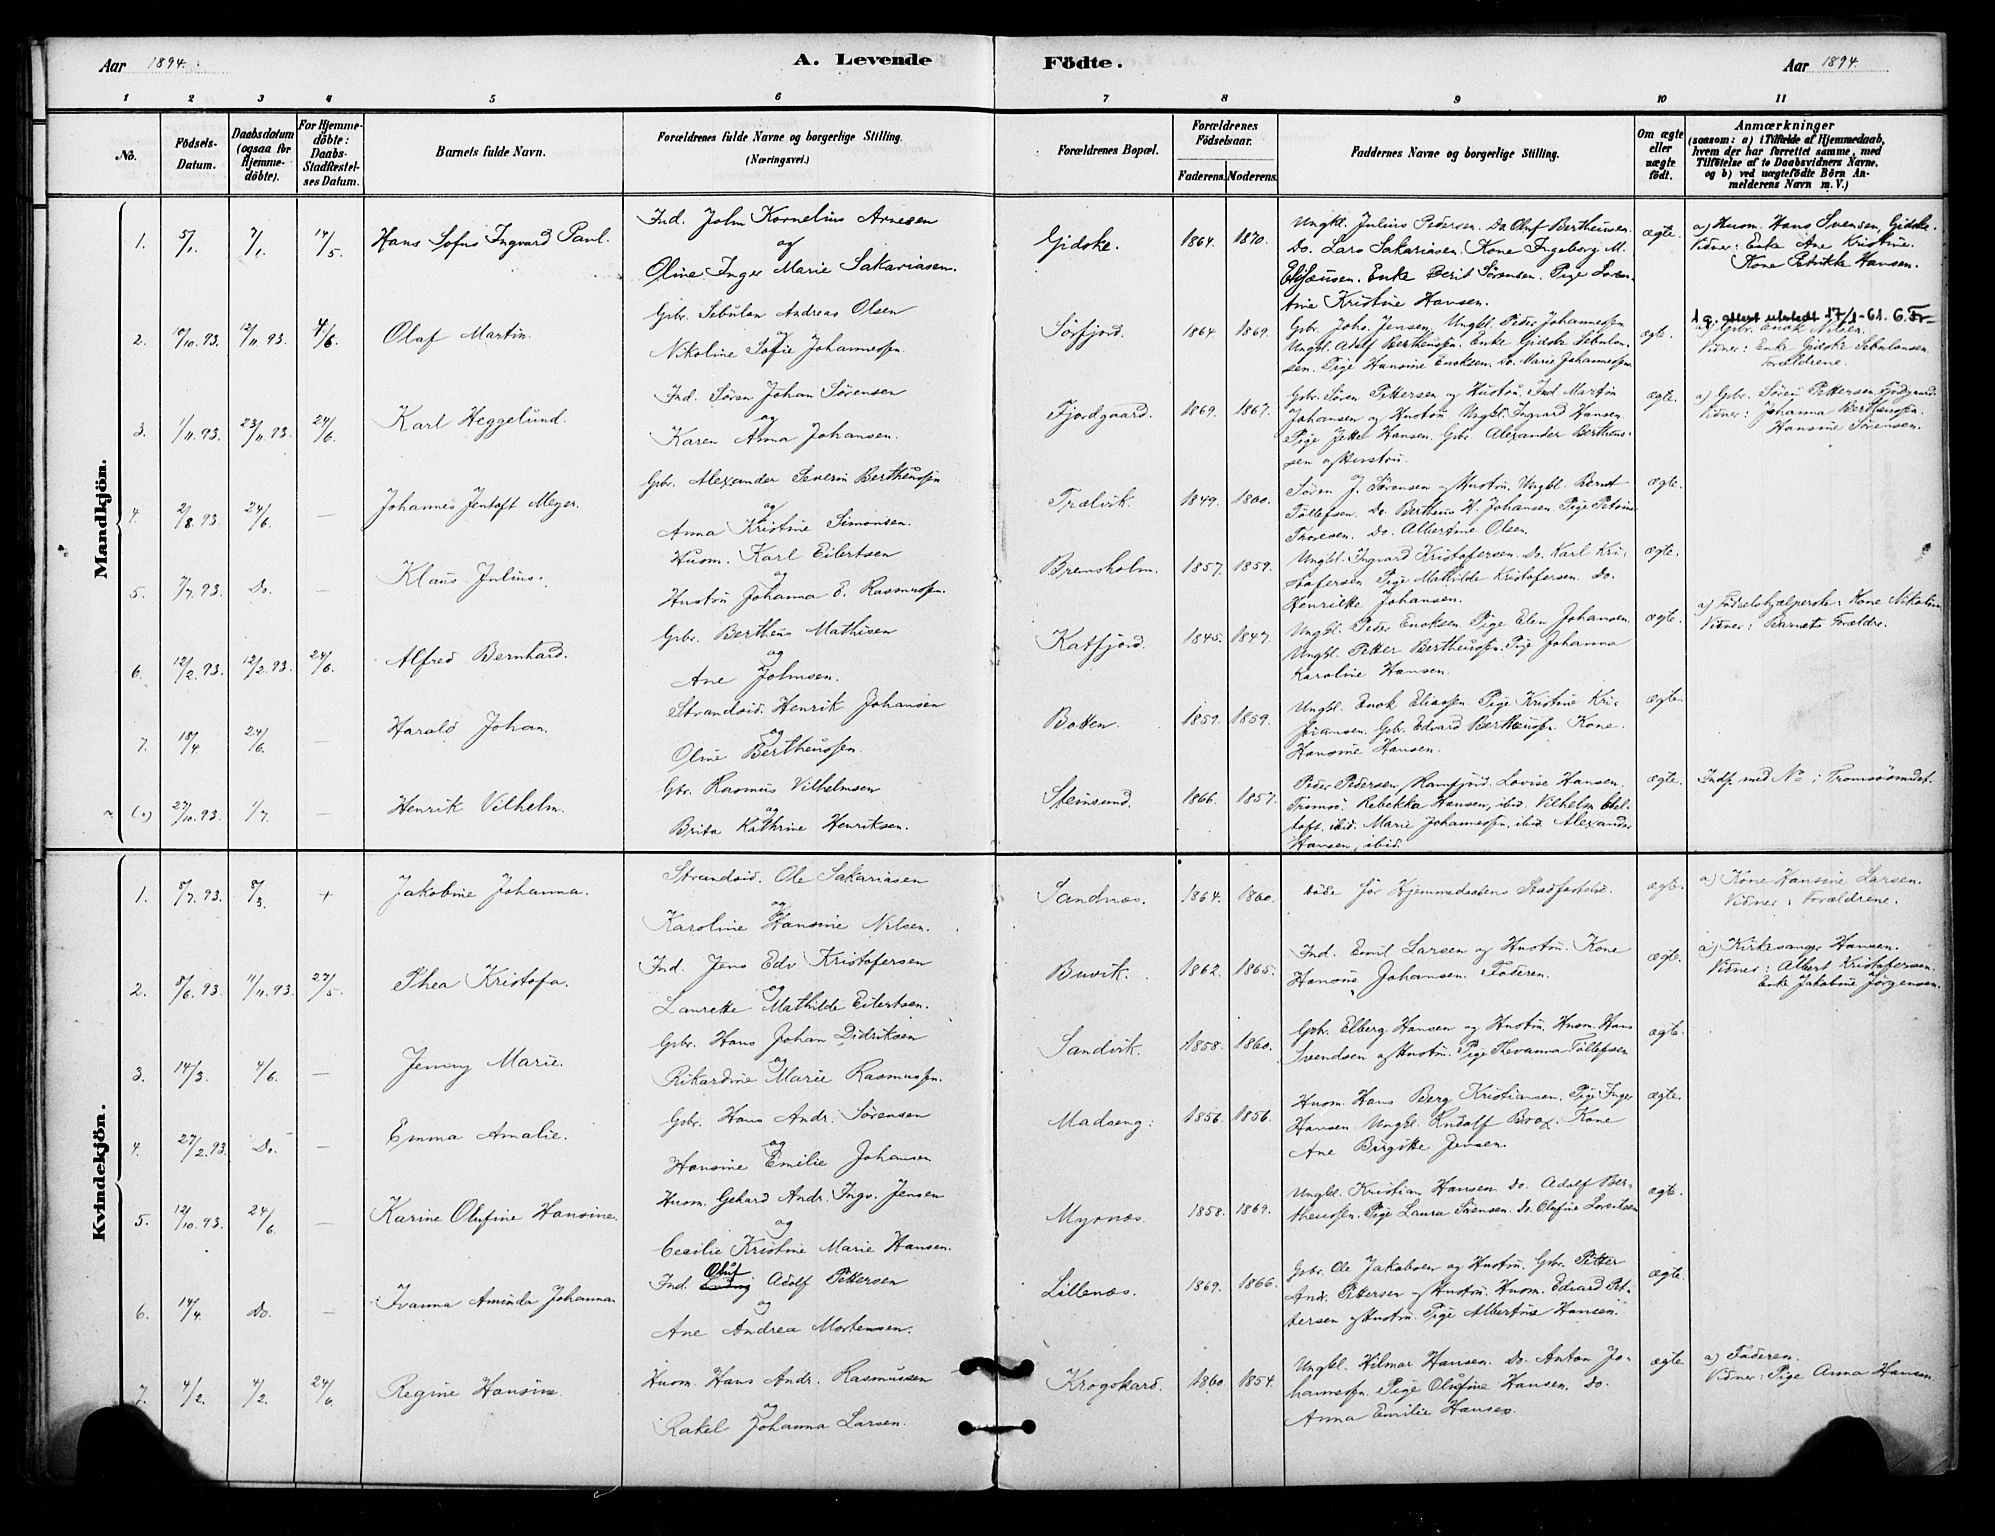 Aar 1894. A. Levende Födte. Aar 1894.
1 2 3 4 5 6 7 8 9 10 11
No.
Födsels-Datum.
Daabsdatum (ogsaa for Hjemme-döbte).
For Hjemme-döbte: Daabs-Stadfæstel-ses Datum.
Barnets fulde Navn.
Forældrenes fulde Navne og borgerlige Stilling. (Næringsvei.)
Forældrenes Bopæl.
Forældrenes Födselsaar.
Faderens. Moderens.
Faddernes Navne og borgerlige Stilling.
Om ægte eller uægte födt.
Anmærkninger
(saasom: a) i Tilfælde af Hjemmedaab,
hvem der har forrettet samme, med
Tilföielse af to Daabsvidners Navne,
og b) ved uægtefödte Börn An-
melderens Navn m. V.)
Mandkjön.
1. 5/1. 7/1. 14/5. Hans Sofus Ingvard Paul.
Ind. John Kornelius Arnesen
og
Oline Inger Marie Sakariasen.
Gidske. 1864. 1870.
Ungkl. Julius Pedersen. Do. Oluf Bertheussen.
Do. Lars Sakariasen. Kone Ingeborg M.
Enke Berit Sørensen. Pige Loren-
tine Kristine Hansen.
ægte.
a) Husm. Hans Svensen, Gidske.
Vidner: Enke Ane Kristine.
Kone Petrikke Hansen.
2. 10/10.93. 12/11.93. 4/6. Olaf Martin.
Gbr. Sebulon Andreas Olsen
og
Nikoline Sofie Johannessen.
Sørfjord. 1864. 1869.
Gbr. Johs. Jensen. Ungkl. Peder Johannessen
Ungkl. Adolf Bertheussen. Enke Gidske Sebulon-
sen. Pige Hansine Enoksen. Do. Marie Johannessen.
ægte.
1 g. attest utstedt 17/1-61. G. Fr-
a) Gbr. Enok Nilsen.
Vidner: Enke Gidske Sebulonsen.
Forældrene.
3. 1/11.93. 23/11.93. 24/6. Karl Heggelund.
Ind. Søren Johan Sørensen
og
Karen Anna Johansen.
Fjordgaard. 1869. 1867.
Gbr. Søren Pettersen og Hustru. Ind. Martin
Johansen og Hustru. Ungkl. Ingvard Hansen.
Pige Jette Hansen. Gbr. Alexander Bertheus-
sen og Hustru.
ægte.
a) Gbr. Søren Pettersen Fjordgaard.
Vidner: Johanna Bertheussen.
Hansine Sørensen.
4. 2/8.93. 24/6. — Johannes Jentoft Meyer.
Gbr. Alexander Severin Bertheussen
og
Anna Kristine Simonsen.
Trælvik. 1849. 1860.
Søren J. Sørensen og Hustru. Ungkl. Bernt
Tollefsen. Do. Bertheus H. Johansen. Pige Petrine
Do. Albertine Olsen.
ægte.
5. 7/7.93. Do. — Klaus Julius.
Husm. Karl Eilertsen
og
Hustru Johanna E. Rasmussen.
Brensholm. 1857. 1859.
Ungkl. Ingvard Kristofersen. Do. Karl Kri-
stofersen. Pige Mathilde Kristofersen. Do.
Henrikke Johansen.
ægte.
6. 12/2.93. 12/2.93. 24/6. Alfred Bernhard.
Gbr. Bertheus Mathisen
og
Ane Johnsen.
Katfjord. 1845. 1847.
Ungkl. Peder Enoksen. Pige Elen Johansen.
Ungkl. Petter Bertheussen. Pige Johanna
Karoline Hansen.
ægte.
a) Fødselshjælperske: Kone Nikoline
Vidner: Barnets Forældre.
7. 18/4. 24/6. — Harald Johan.
Strandsid. Henrik Johansen
og
Oline Bertheussen.
Botten. 1859. 1859.
Ungkl. Enok Eliassen. Pige Kristine Kri-
stiansen. Gbr. Edvard Bertheussen. Kone
Hansine Hansen.
ægte.
(0) 27/10.93. 1/7. — Henrik Vilhelm.
Gbr. Rasmus Vilhelmsen
og
Brita Kathrine Henriksen.
Steinsund. 1866. 1857.
Peder Pedersen, Ramfjord. Lovise Hansen.
Tromsö. Rebekka Hansen, ibid. Vilhelm Ebel-
toft, ibid. Marie Johannessen, ibid. Alexander
Hansen, ibid.
ægte.
Indf. med No i Tromsösundet.
Kvindekjön.
1. 8/7.93. 8/3. + Jakobine Johanna.
Strandsid. Ole Sakariasen
og
Karoline Hansine Nilsen.
Sandnæs. 1864. 1860.
Døde før Hjemmedaabens Stadfæstelse.
ægte.
a) Kone Hansine Larsen.
Vidner: Forældrene.
2. 8/6.93. 11/11.93. 27/5. Thea Kristofa.
Ind. Jens Edv Kristofersen
og
Laurette Mathilde Eilertsen.
Buvik. 1862. 1865.
Ind. Emil Larsen og Hustru. Kone
Hansine Johansen. Faderen.
ægte.
a) Kirkesanger Hansen.
Vidner: Albert Kristofersen.
Enke Jakobine Jørgensen.
3. 14/3. 4/6. — Jenny Marie.
Gbr. Hans Johan Didriksen
og
Rikardine Marie Rasmussen.
Sandvik. 1858. 1860.
Gbr. Elberg Hansen og Hustru. Husm. Hans
Svendsen og Hustru. Pige Thevanna Tollefsen
ægte.
4. 27/2.93. Do. — Emma Amalie.
Gbr. Hans Andr. Sørensen
og
Hansine Emilie Johansen
Madseng: 1856. 1856.
Husm. Hans Berg Kristiansen. Pige Inger
Hansen. Ungkl. Rudolf Brox. Kone
Ane Birgitte Jensen.
ægte.
5. 12/10.93. 24/6. — Karine Olufine Hansine.
Husm. Gerhard Andr. Ingv. Jensen
og
Cecilie Kristine Marie Hansen.
Myrnæs. 1858. 1869.
Ungkl. Kristian Hansen. Do. Adolf Ber-
theussen. Pige Laura Sørensen. Do. Olufine Lorentsen
ægte.
6. 14/4. Do. — Ivanna Aminda Johanna
Ind. Oluf Adolf Pettersen
og
Ane Andrea Mortensen.
Lillenæs. 1869. 1866.
Gbr. Ole Jakobsen og Hustru. Gbr. Petter
Andr. Pettersen og Hustru. Husm. Edvard Pet-
tersen og Hustru. Pige Albertine Hansen.
ægte.
7. 4/2. 4/2. 24/6. Regine Hansine
Husm. Hans Andr. Rasmussen
og
Rakel Johanna Larsen.
Krogskard. 1860 1854.
Ungkl. Hilmar Hansen. Do. Anton Jo-
hannessen. Pige Olufine Hansen. Do.
Anna Emilie Hansen.
ægte
a) Faderen.
Vidner: Pige Anna Hansen.